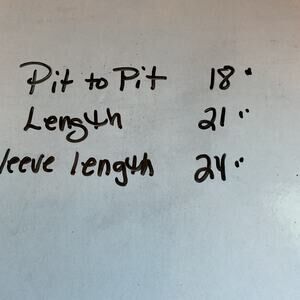 Pit to Pit 18"
Length 21"
leeve length 24"